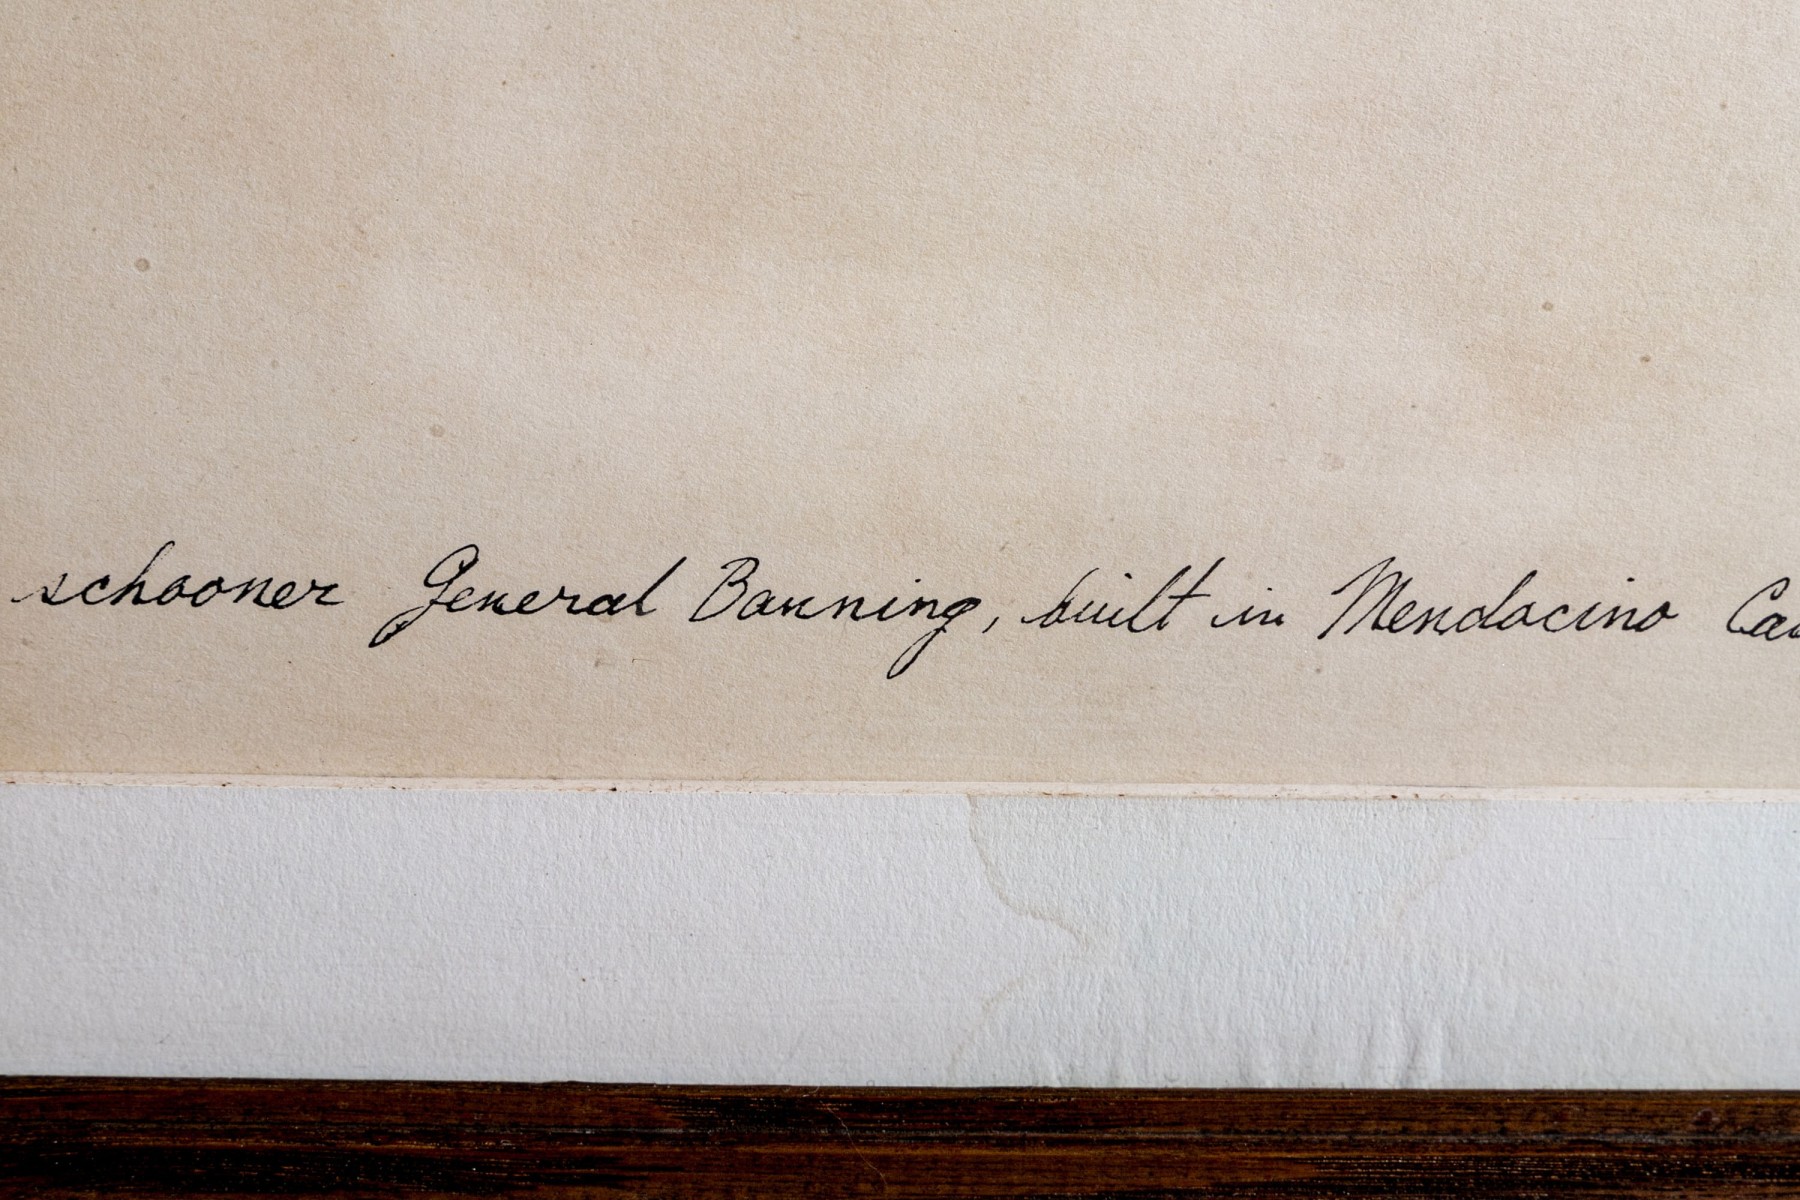 schooner General Banning, built in Mendocino Cal